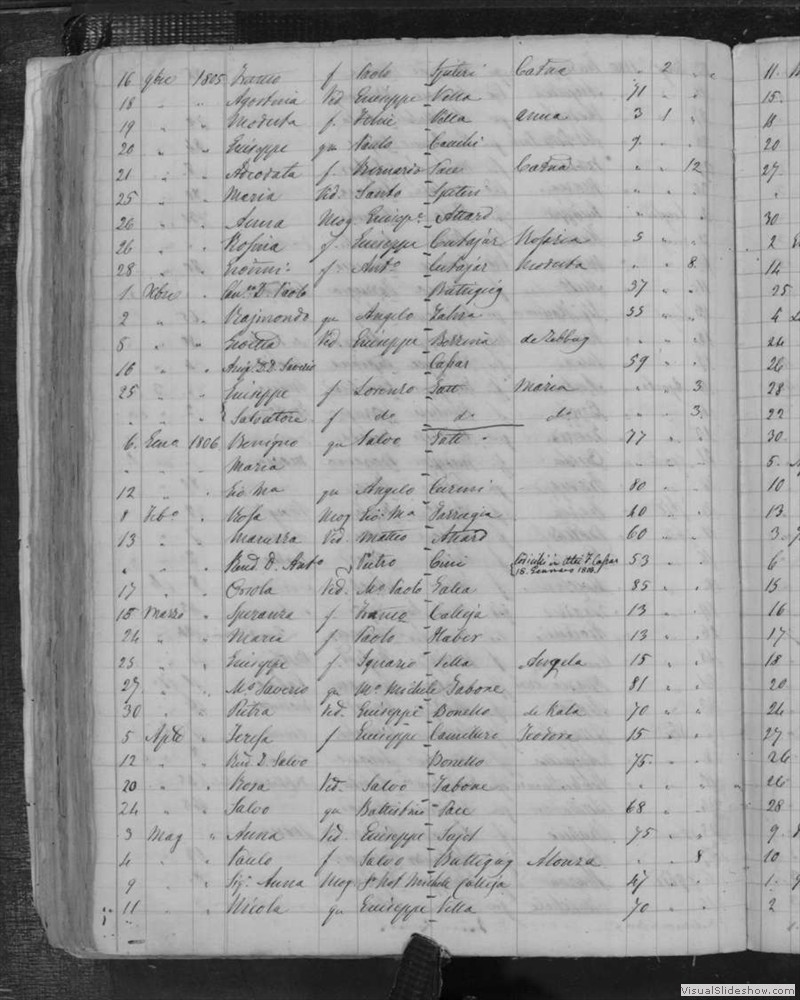 16 9bre 1805 Franco f Paolo Spiteri Catna " 2 " "
18 " " Agostina Ved Giuseppe Vella 71 " "
19 " " Modesta f. Felice Vella Anna 3 1 "
20 " " Giuseppe qu Paulo Camilli 9 " "
21 " " Adeodata f Bernardo Pace Catna " " 12
25 " " Maria Ved. Santo Spiteri " " "
26 " " Anna Mog Giusepe Attard " " "
26 " " Rosina f. Giuseppe Cutajar Rosaria 5 " "
28 " " f Anto Cutajar Modesta " " 8
1 Xbre " D. Paolo Buttigieg 37 " "
2 " " Raimondo qu Angelo Zahra 55 " "
5 " " Ved. Giuseppe de Zebbug " " "
16 " " D. Saverio Caxar 59 " "
25 " " Giuseppe f Lorenzo Gatt Maria " " 3
" " Salvatore f do do do " " 3
6 Geno 1806 Benigno qu Salvo Gatt 77 " "
" " Maria
12 " " Gio Ma qu Angelo 80 " "
8 Febo " Rosa Mog Gio: Ma Farrugia 40 " "
13 " " Maruzza Ved Matteo Attard 60 " "
" " Revd. D. Anto Pietro Cini 53 " "
15. Gennaro
17 " " Orsola Ved. Mo Paolo Galea 85 " "
15 Marzo " Speranza f Franco Calleja 13 " "
24 " " Maria f Paolo Haber 13 " "
25 " " Giuseppe f. Ignazio Vella Angela 15 " "
27 " " Mo Saverio qu Mo Michele Tabone 81 " "
30 " " Petra Ved. Giuseppe Bonello de Kala 70 " "
5 Aple " Teresa f Giuseppe Camilleri Teodora 15 " "
12 " " Revd D. Salvo Bonello 75 " "
20 " " Rosa Ved. Salvo Tabone " " "
24 " " Salvo qu Battista Pace 68 " "
3 Mag " Anna Ved Giuseppe 75 " "
4 " " Paulo f Salvo Buttigieg Alonza " " 8
9 " " Sig. Anna Mog Not Michele Calleja 47 " "
11 " " Nicola qu Giuseppe Vella 70 " "
11.
15.
18
20
27
"
30
2
14
25
4
24
26
28
22
30.
5.
10
13.
3
6
15
16
17
18
20
24
27
26
26
28
9
10
1
2
VisualSlideshow.com